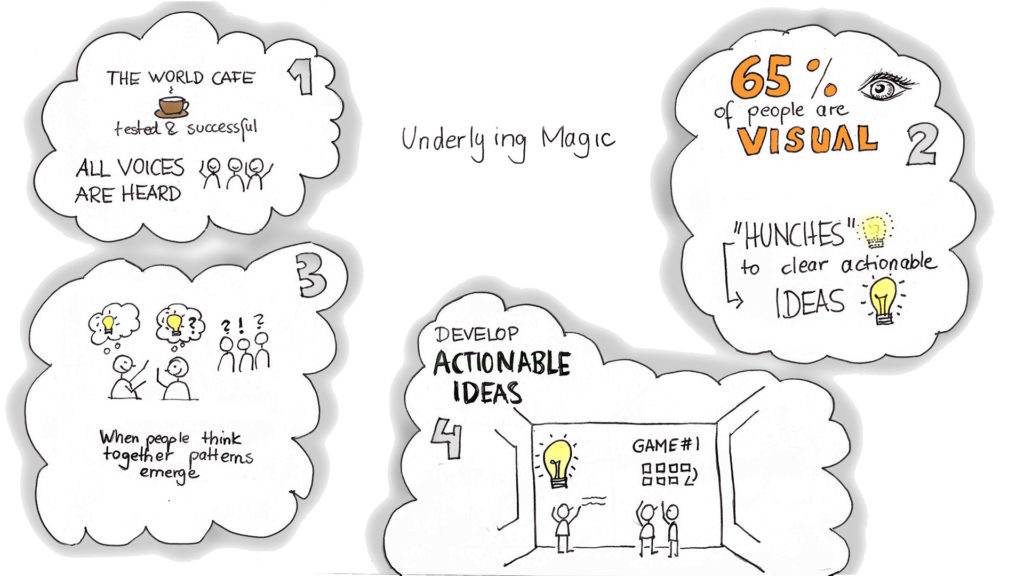 Underlying Magic
1
THE WORLD CAFE
tested & successful
ALL VOICES
ARE HEARD
2
65%
of people are
VISUAL
"HUNCHES"
to clear actionable
IDEAS
3
?
? ! ?
When people think
together patterns
emerge
4
DEVELOP
ACTIONABLE
IDEAS
GAME #1